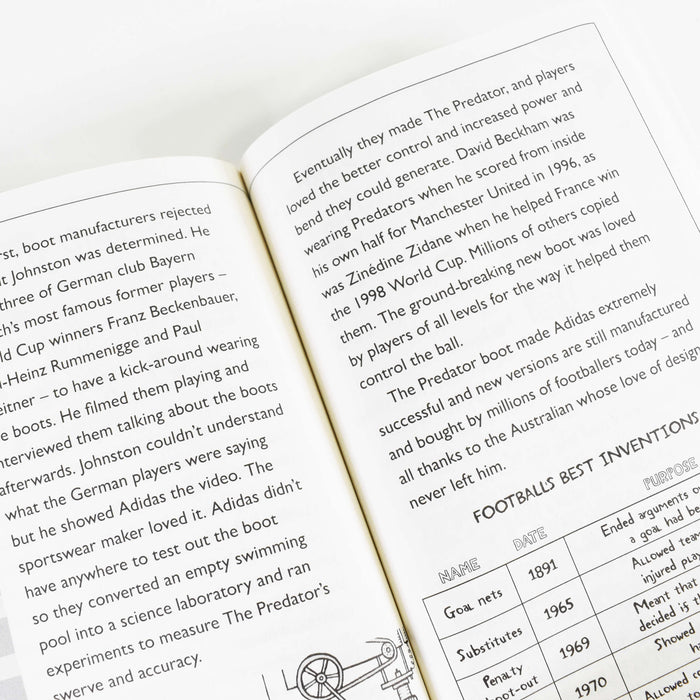 rst, boot manufacturers rejected
t Johnston was determined. He
three of German club Bayern
ch's most famous former players –
ld Cup winners Franz Beckenbauer,
l-Heinz Rummenigge and Paul
eitner – to have a kick-around wearing
e boots. He filmed them playing and
nterviewed them talking about the boots
afterwards. Johnston couldn't understand
what the German players were saying
but he showed Adidas the video. The
sportswear maker loved it. Adidas didn't
have anywhere to test out the boot
so they converted an empty swimming
pool into a science laboratory and ran
experiments to measure The Predator's
swerve and accuracy.
Eventually they made The Predator, and players
loved the better control and increased power and
bend they could generate. David Beckham was
wearing Predators when he scored from inside
his own half for Manchester United in 1996, as
was Zinédine Zidane when he helped France win
the 1998 World Cup. Millions of others copied
them. The ground-breaking new boot was loved
by players of all levels for the way it helped them
control the ball.
The Predator boot made Adidas extremely
successful and new versions are still manufactured
and bought by millions of footballers today – and
all thanks to the Australian whose love of design
never left him.
FOOTBALLS BEST INVENTIONS
NAME DATE PURPOSE
Goal nets 1891 Ended arguments o
a goal had be
Substitutes 1965 Allowed team
injured play
Penalty 1969 Meant that
oot-out decided is th
1970 Showed
Allowed